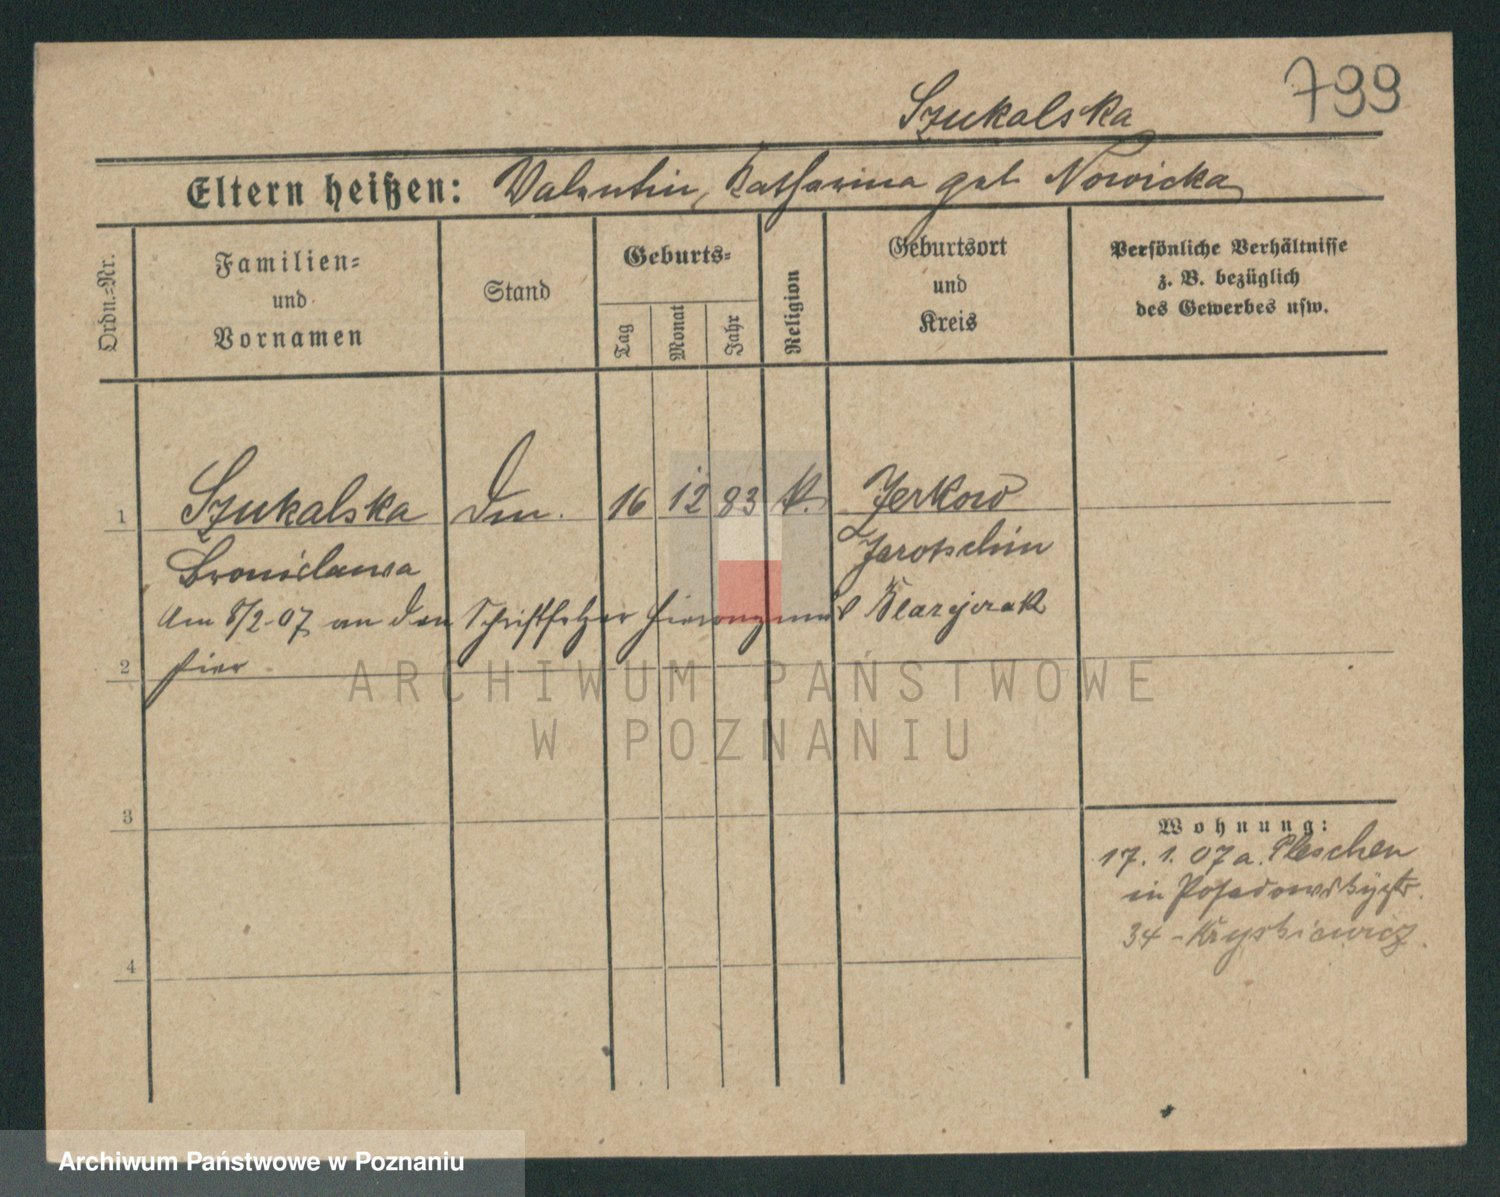 799
Szukalska
Eltern heißen: Valentin, Katharina geb Nowicka
Ordn.-Nr.
Familien-
und
Vornamen
Stand
Geburts-
Tag
Monat
Jahr
Religion
Geburtsort
und
Kreis
Persönliche Verhältnisse
z. B. bezüglich
des Gewerbes usw.
1 Szukalska 16 12 83 k. Zerkow
Bronislawa Jarotschin
Am 8/2 07 an den Schriftsetzer Hieronymus
hier
2
3
4
Wohnung:
17. 1. 07 a. Pleschen
in Posadowskystr.
34 - Kryskiewicz.
ARCHIWUM PAŃSTWOWE
W POZNANIU
Archiwum Państwowe w Poznaniu